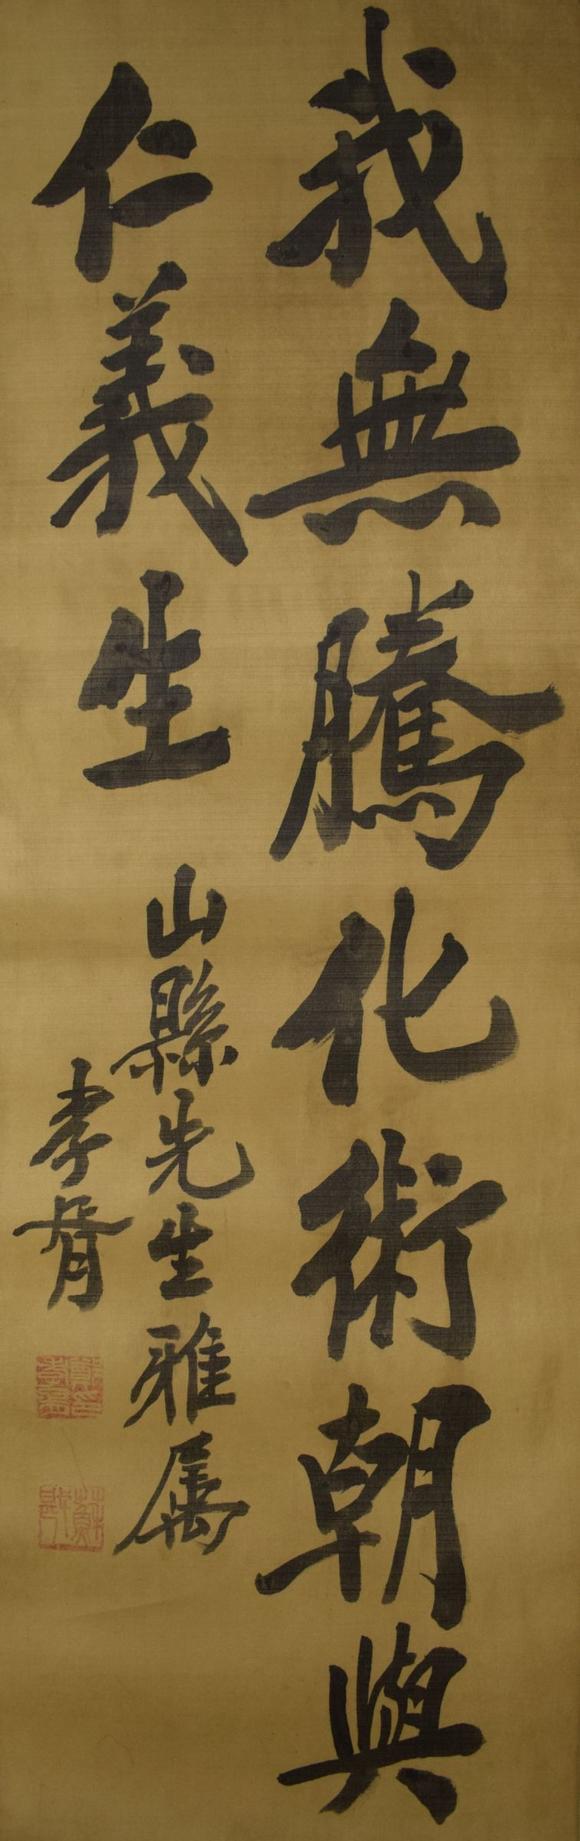 我無騰化術朝與
仁義生
山縣先生雅屬
孝胥